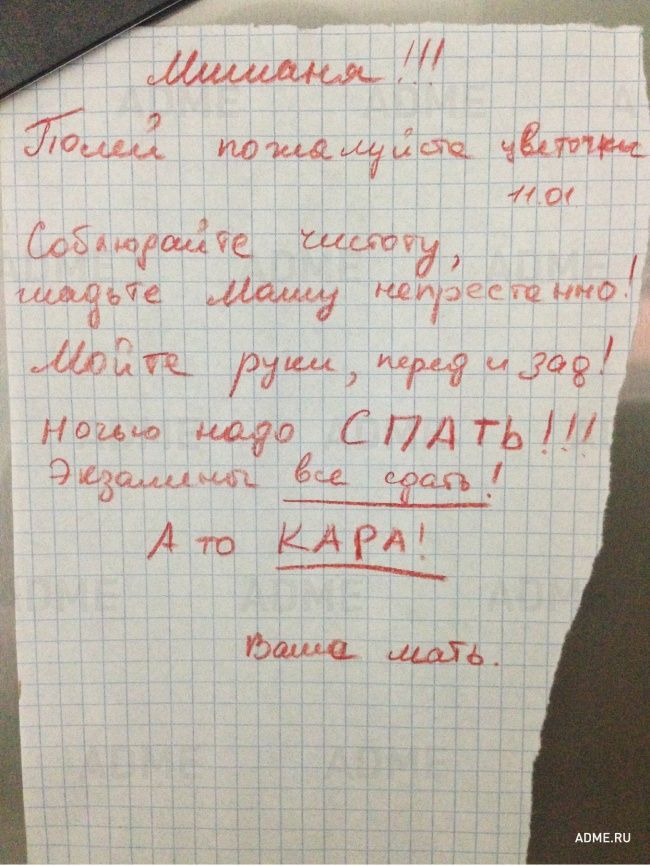 Мишаня!!!
Полей пожалуйста цветочки
11.01
Соблюдайте чистоту,
гладьте Машу непрестанно!
Мойте руки, перед и зад!
Ночью надо СПАТЬ!!!
Экзамены все сдать!
А то КАРА!
Ваша мать.
ADME
ADME
ADME
ADME
ADME
ADME
ADME
ADME
ADME.RU